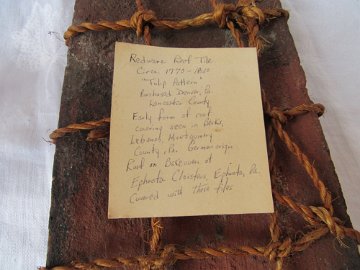 Redware Roof Tile
Circa. 1770-1810
"Tulip Pattern"
Purchased Denver, Pa.
Lancaster County
Early form of roof
covering seen in Berks,
Lebanon, Montgomery
County, Pa. German origin
Roof on Bakeoven at
Ephrata Cloisters, Ephrata, Pa.
Covered with these tiles